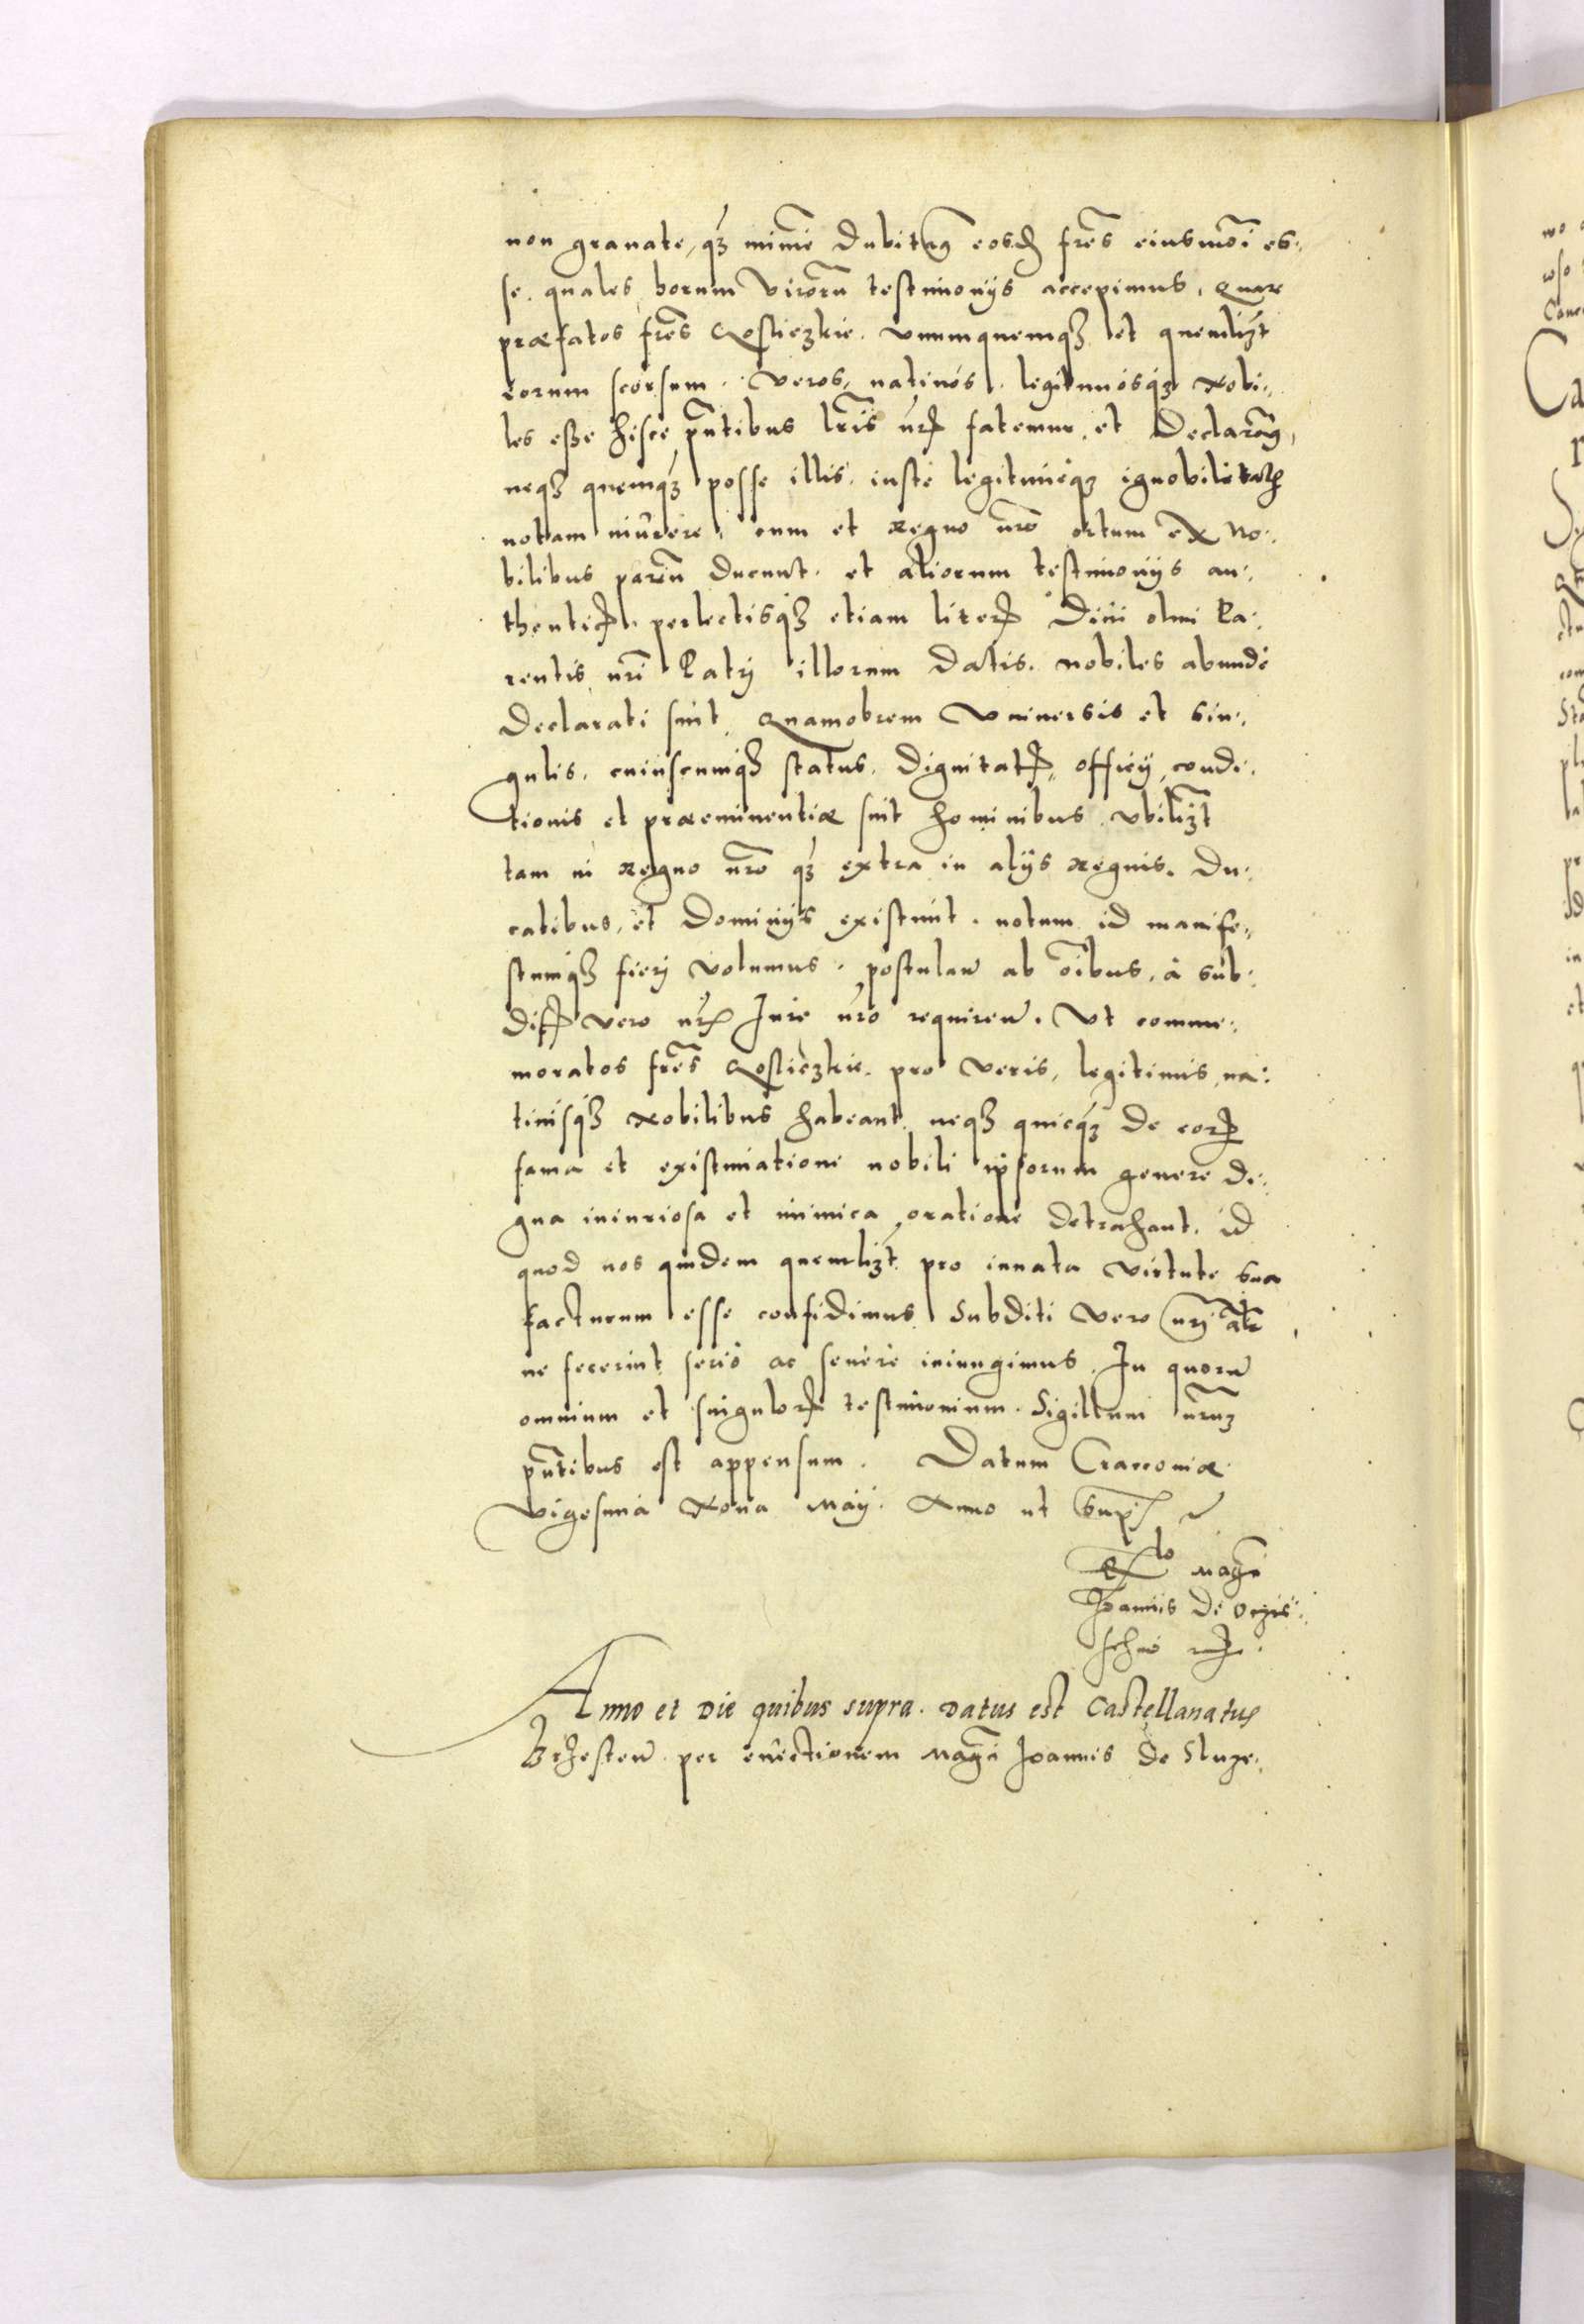 non grauate, qz minime dubitamus eosdem frēs eiusmōi es:
se. quales horum virorū testimonijs accepimus. Quare
præfatos frēs Gosliczkie. vnumquemqз et quemlibet
eorum seorsum. veros, natiuós. legitimósqз Nobi:
les esse hisce pñtibus lrīs nrīs fatemur. et declaramus,
neqз quemqз posse illis. iustè legitimèqз ignobilitatis
notam inurere. cum et Regno nrō ortum ex No:
bilibus parentū ducunt. et aliorum testimonijs au:
thenticis. perlectisqз etiam literis Diui olim Pa:
rentis nrī Patrj illorum datis. nobiles abundè
declarati sint. Quamobrem Vniuersis et Sin:
gulis. cuiuscumqз status. dignitatis, officij, condi:
tionis et præeminentiæ sint hominibus. vbilibet
tam in Regno nrō qз extra in alijs Regnis. Du:
catibus, et Dominijs existunt. notum id manife:
stumqз fierj volumus. postulamus ab oībus, à sub:
ditis vero nrīs Iure nrō requirimus. Vt comme:
moratos frēs Gosliczkie. pro veris, legitimis, na:
tiuisqз Nobilibus habeant. neqз quicqз de eorum
fama et existimatione nobili ipsorum genere di:
gna iniuriosa et inimica oratione detrahant. id
quod nos quidem quemlibet pro innata virtute sua
facturum esse confidimus. Subditi vero nrī alr
ne fecerint seriò ac seuerè iniungimus. In quorū
omnium et singulorum testimonium. Sigillum nrūm
pñtibus est appensum. Datum Cracouiæ
vigesima Nona Maij. Anno ut supra
Rlo Magci
Ioannis de Oczie:
schino
Anno et die quibus supra. datus est Castellanatus
Brzesten. per euectionem Magci Ioannis de Sluze: